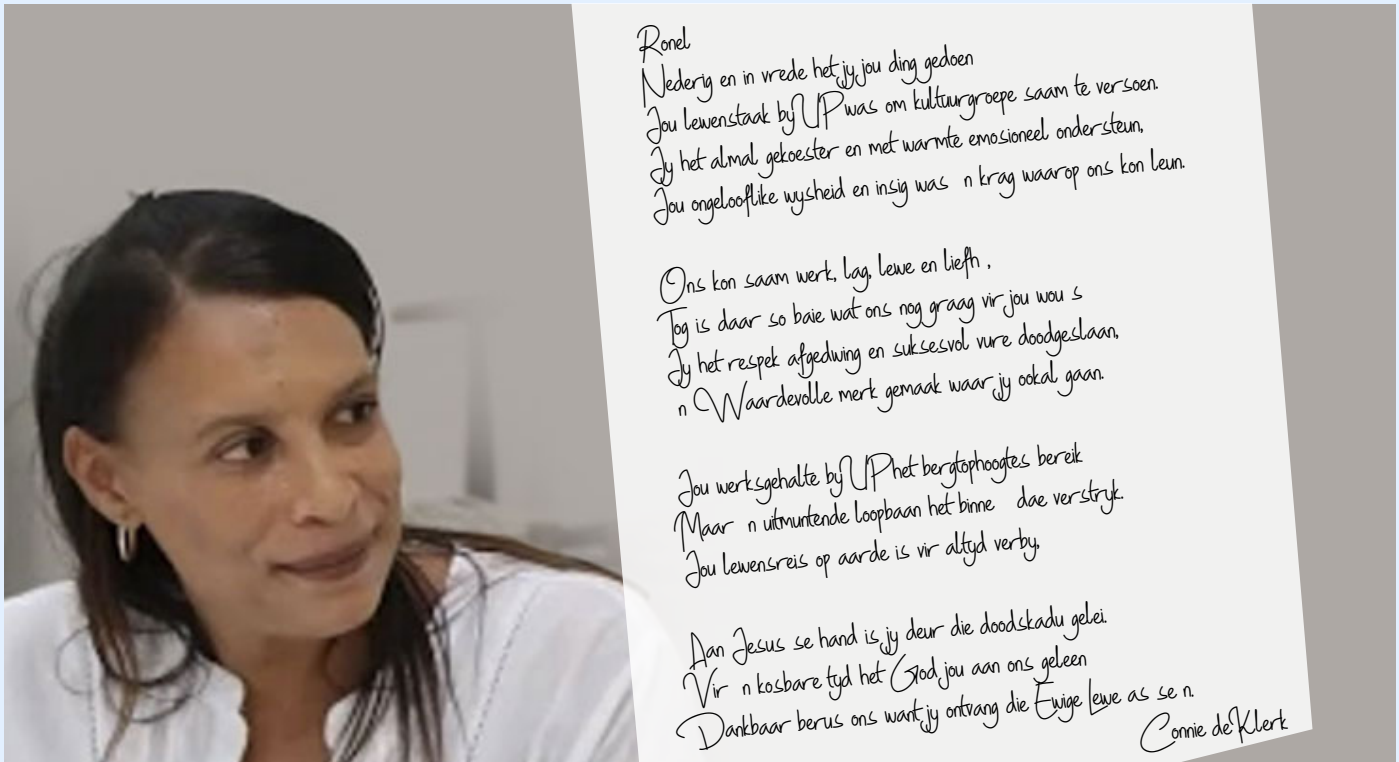 Ronel
Nederig en in vrede het jy jou ding gedoen
Jou lewenstaak by UP was om kultuurgroepe saam te versoen.
Jy het almal gekoester en met warmte emosioneel ondersteun,
Jou ongelooflike wysheid en insig was n krag waarop ons kon leun.
Ons kon saam werk, lag, lewe en liefh ,
Tog is daar so baie wat ons nog graag vir jou wou s
Jy het respek afgedwing en suksesvol vure doodgeslaan,
n Waardevolle merk gemaak waar jy ookal gaan.
Jou werksgehalte by UP het bergtophoogtes bereik
Maar n uitmuntende loopbaan het binne dae verstryk.
Jou lewensreis op aarde is vir altyd verby,
Aan Jesus se hand is jy deur die doodskadu gelei.
Vir n kosbare tyd het God jou aan ons geleen
Dankbaar berus ons want jy ontvang die Ewige Lewe as se n.
Connie de Klerk